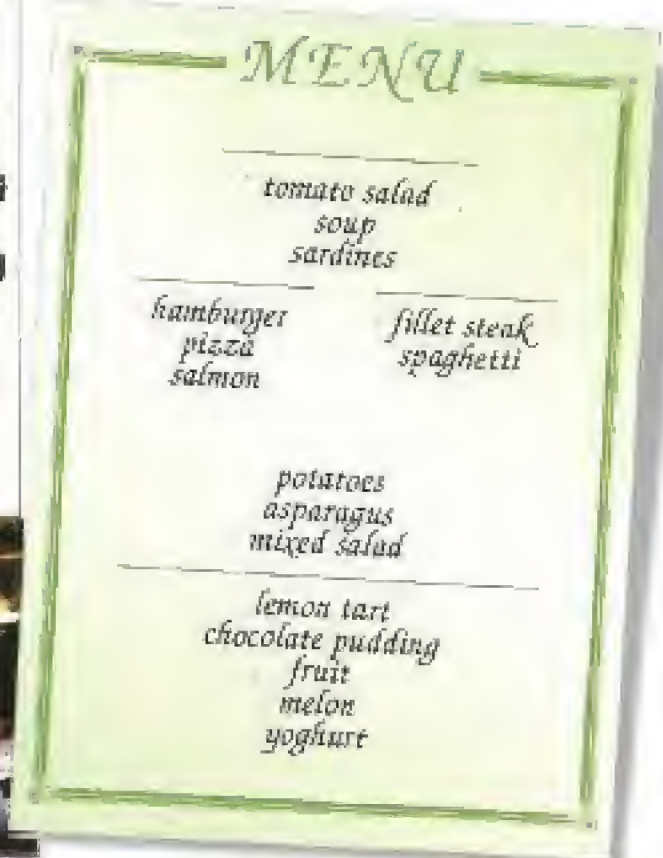 MENU
tomato salad
soup
sardines
hamburger
pizza
salmon
fillet steak
spaghetti
potatoes
asparagus
mixed salad
lemon tart
chocolate pudding
fruit
melon
yoghurt